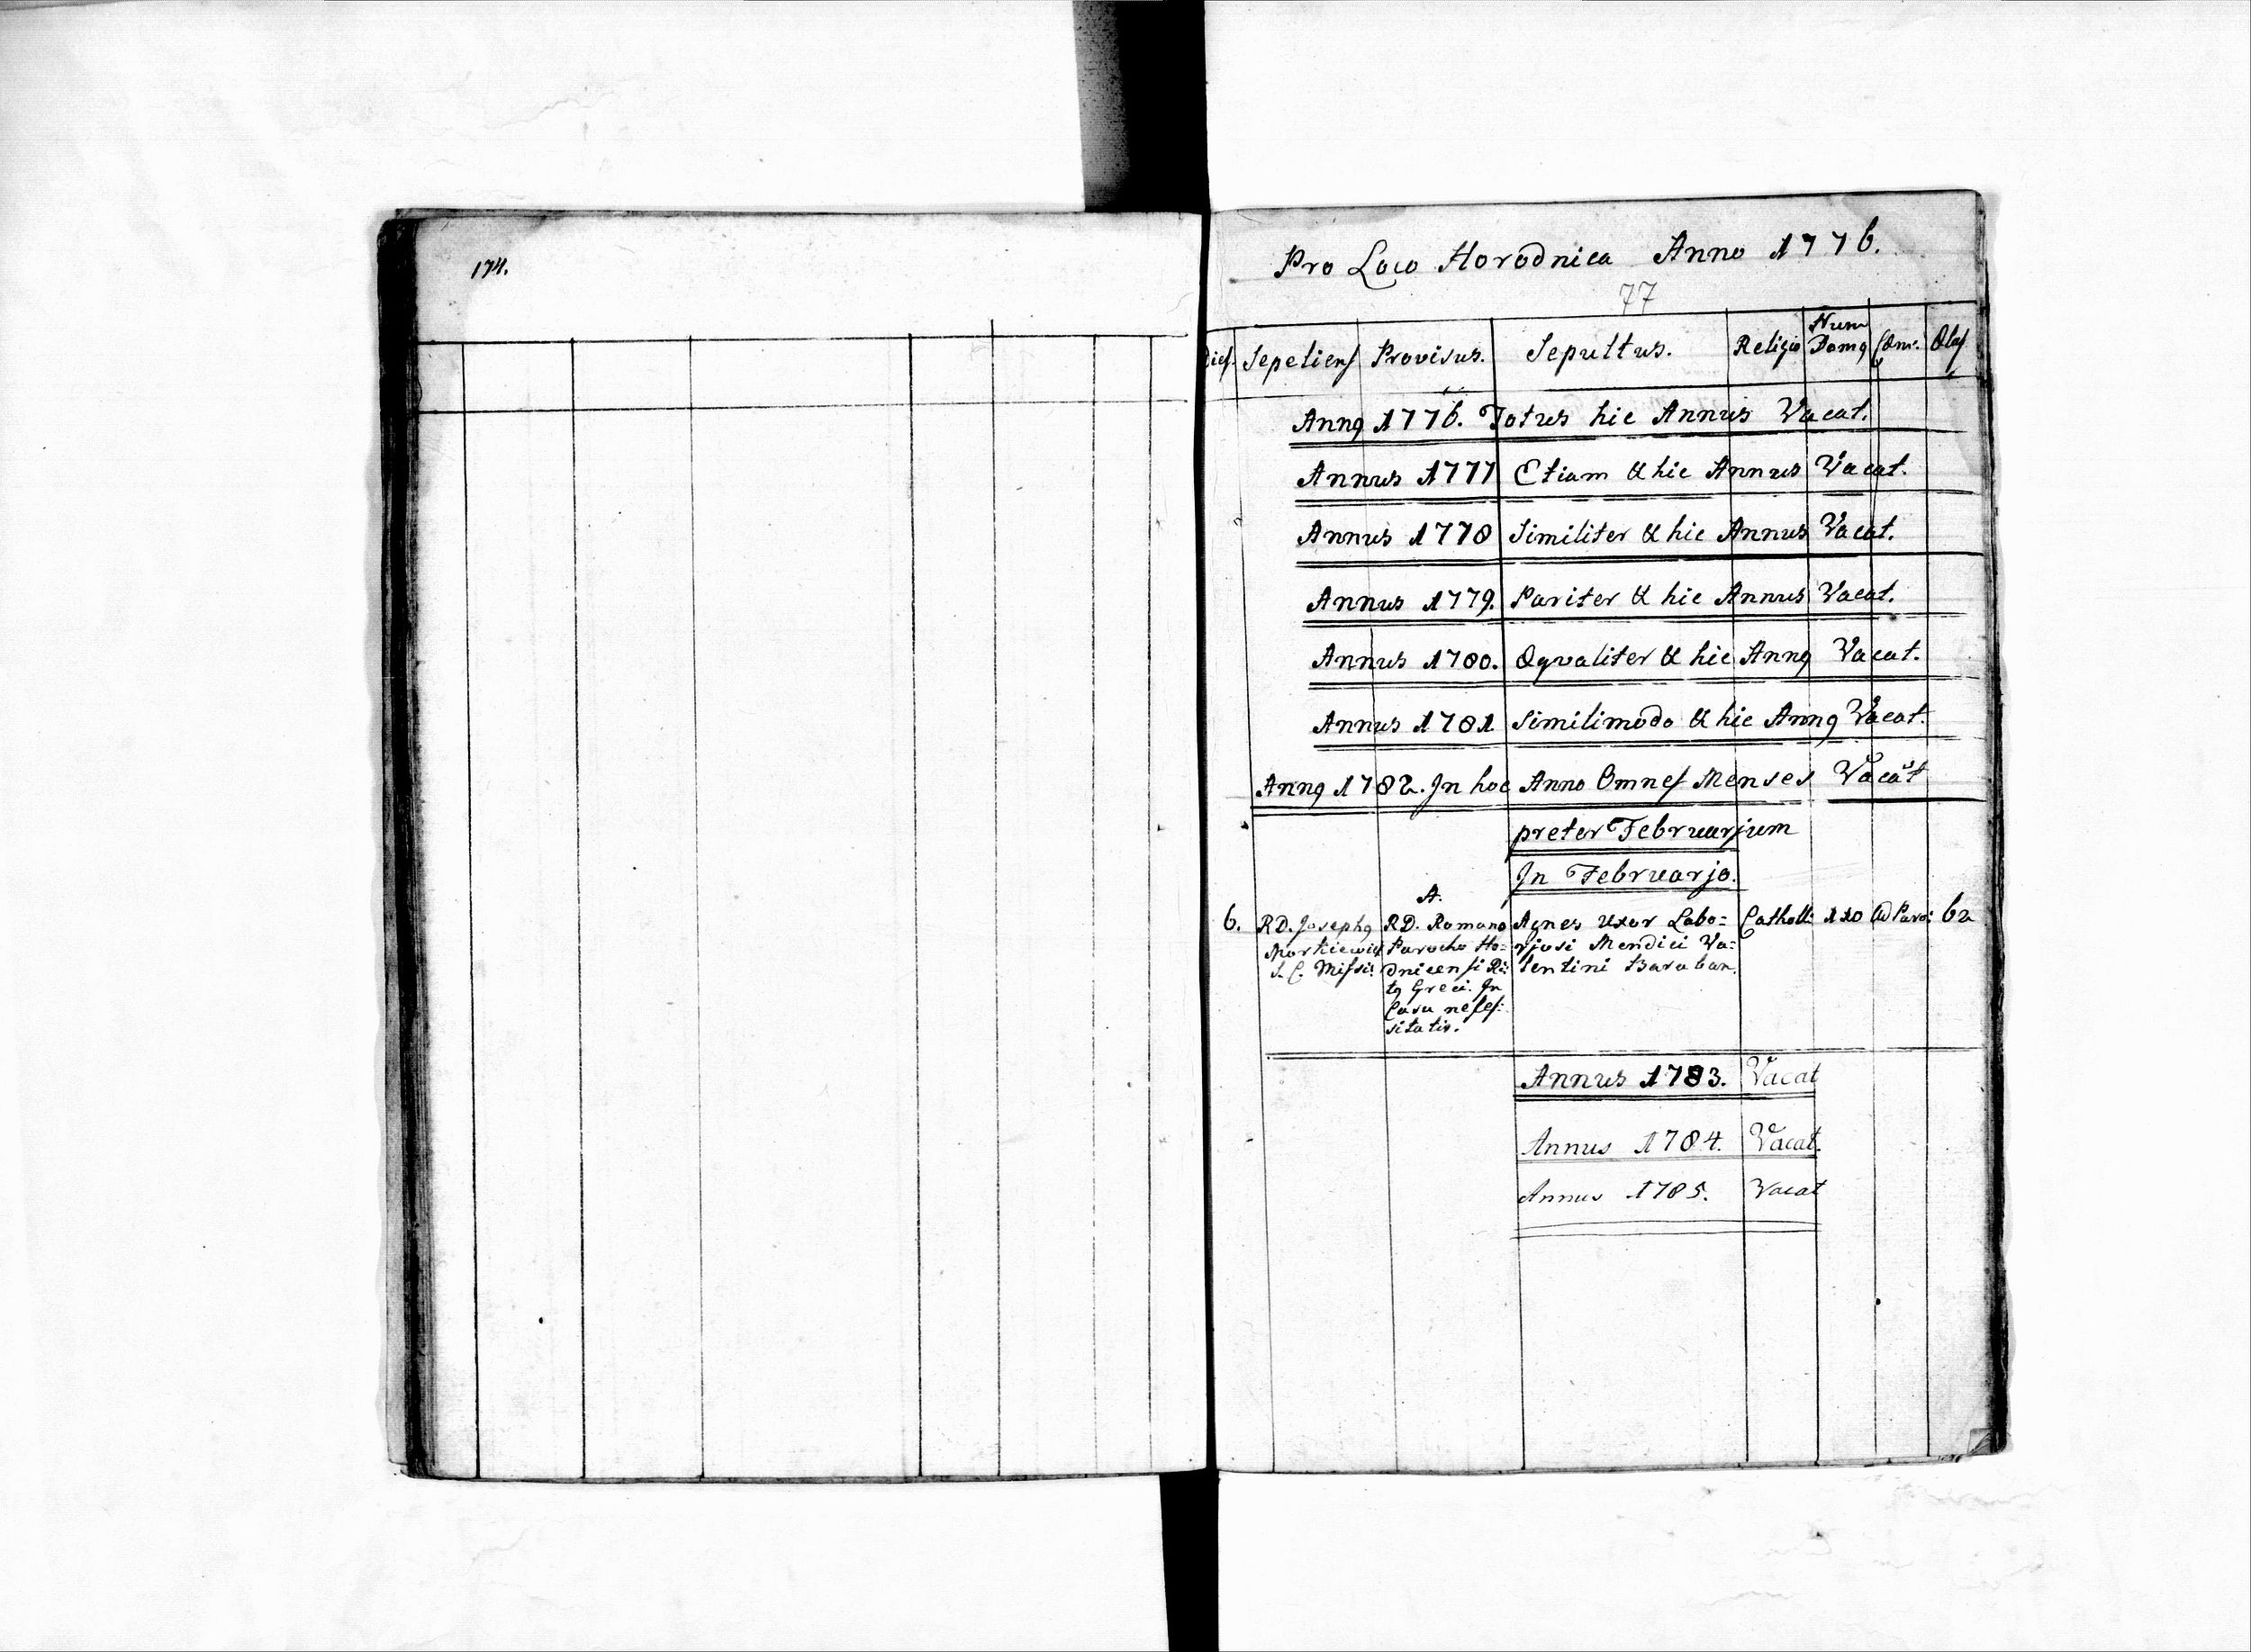 174.
Pro Loco Horodnica Anno 1776.
77
Dies. Sepeliens Provisus. Sepultus. Religio Num Domq Cœm:
Annq 1776. Totus hic Annus Vacat.
Annus 1777 Etiam & hic Annus Vacat.
Annus 1778 Similiter & hic Annus Vacat.
Annus 1779. Pariter & hic Annus Vacat.
Annus 1780. Æqvaliter & hic Annq Vacat.
Annus 1781. Similimodo & hic Annq Vacat.
Annq 1782. In hoc Anno Omnes Menses Vacat
preter Februarjum
In Februarjo.
6. RD. Josephq
S. C. Missi:
A.
RD. Romano
Parocho Ho=
dnicensi Ri:
tq Greci. In
Casu neses:
sitatis.
Agnes Uxor Labo=
rjosi Mendici Va=
lentini Baraban.
Catholi: 120 Ad Paro: 62
Annus 1783. Vacat
Annus 1784. Vacat.
Annus 1785. Vacat